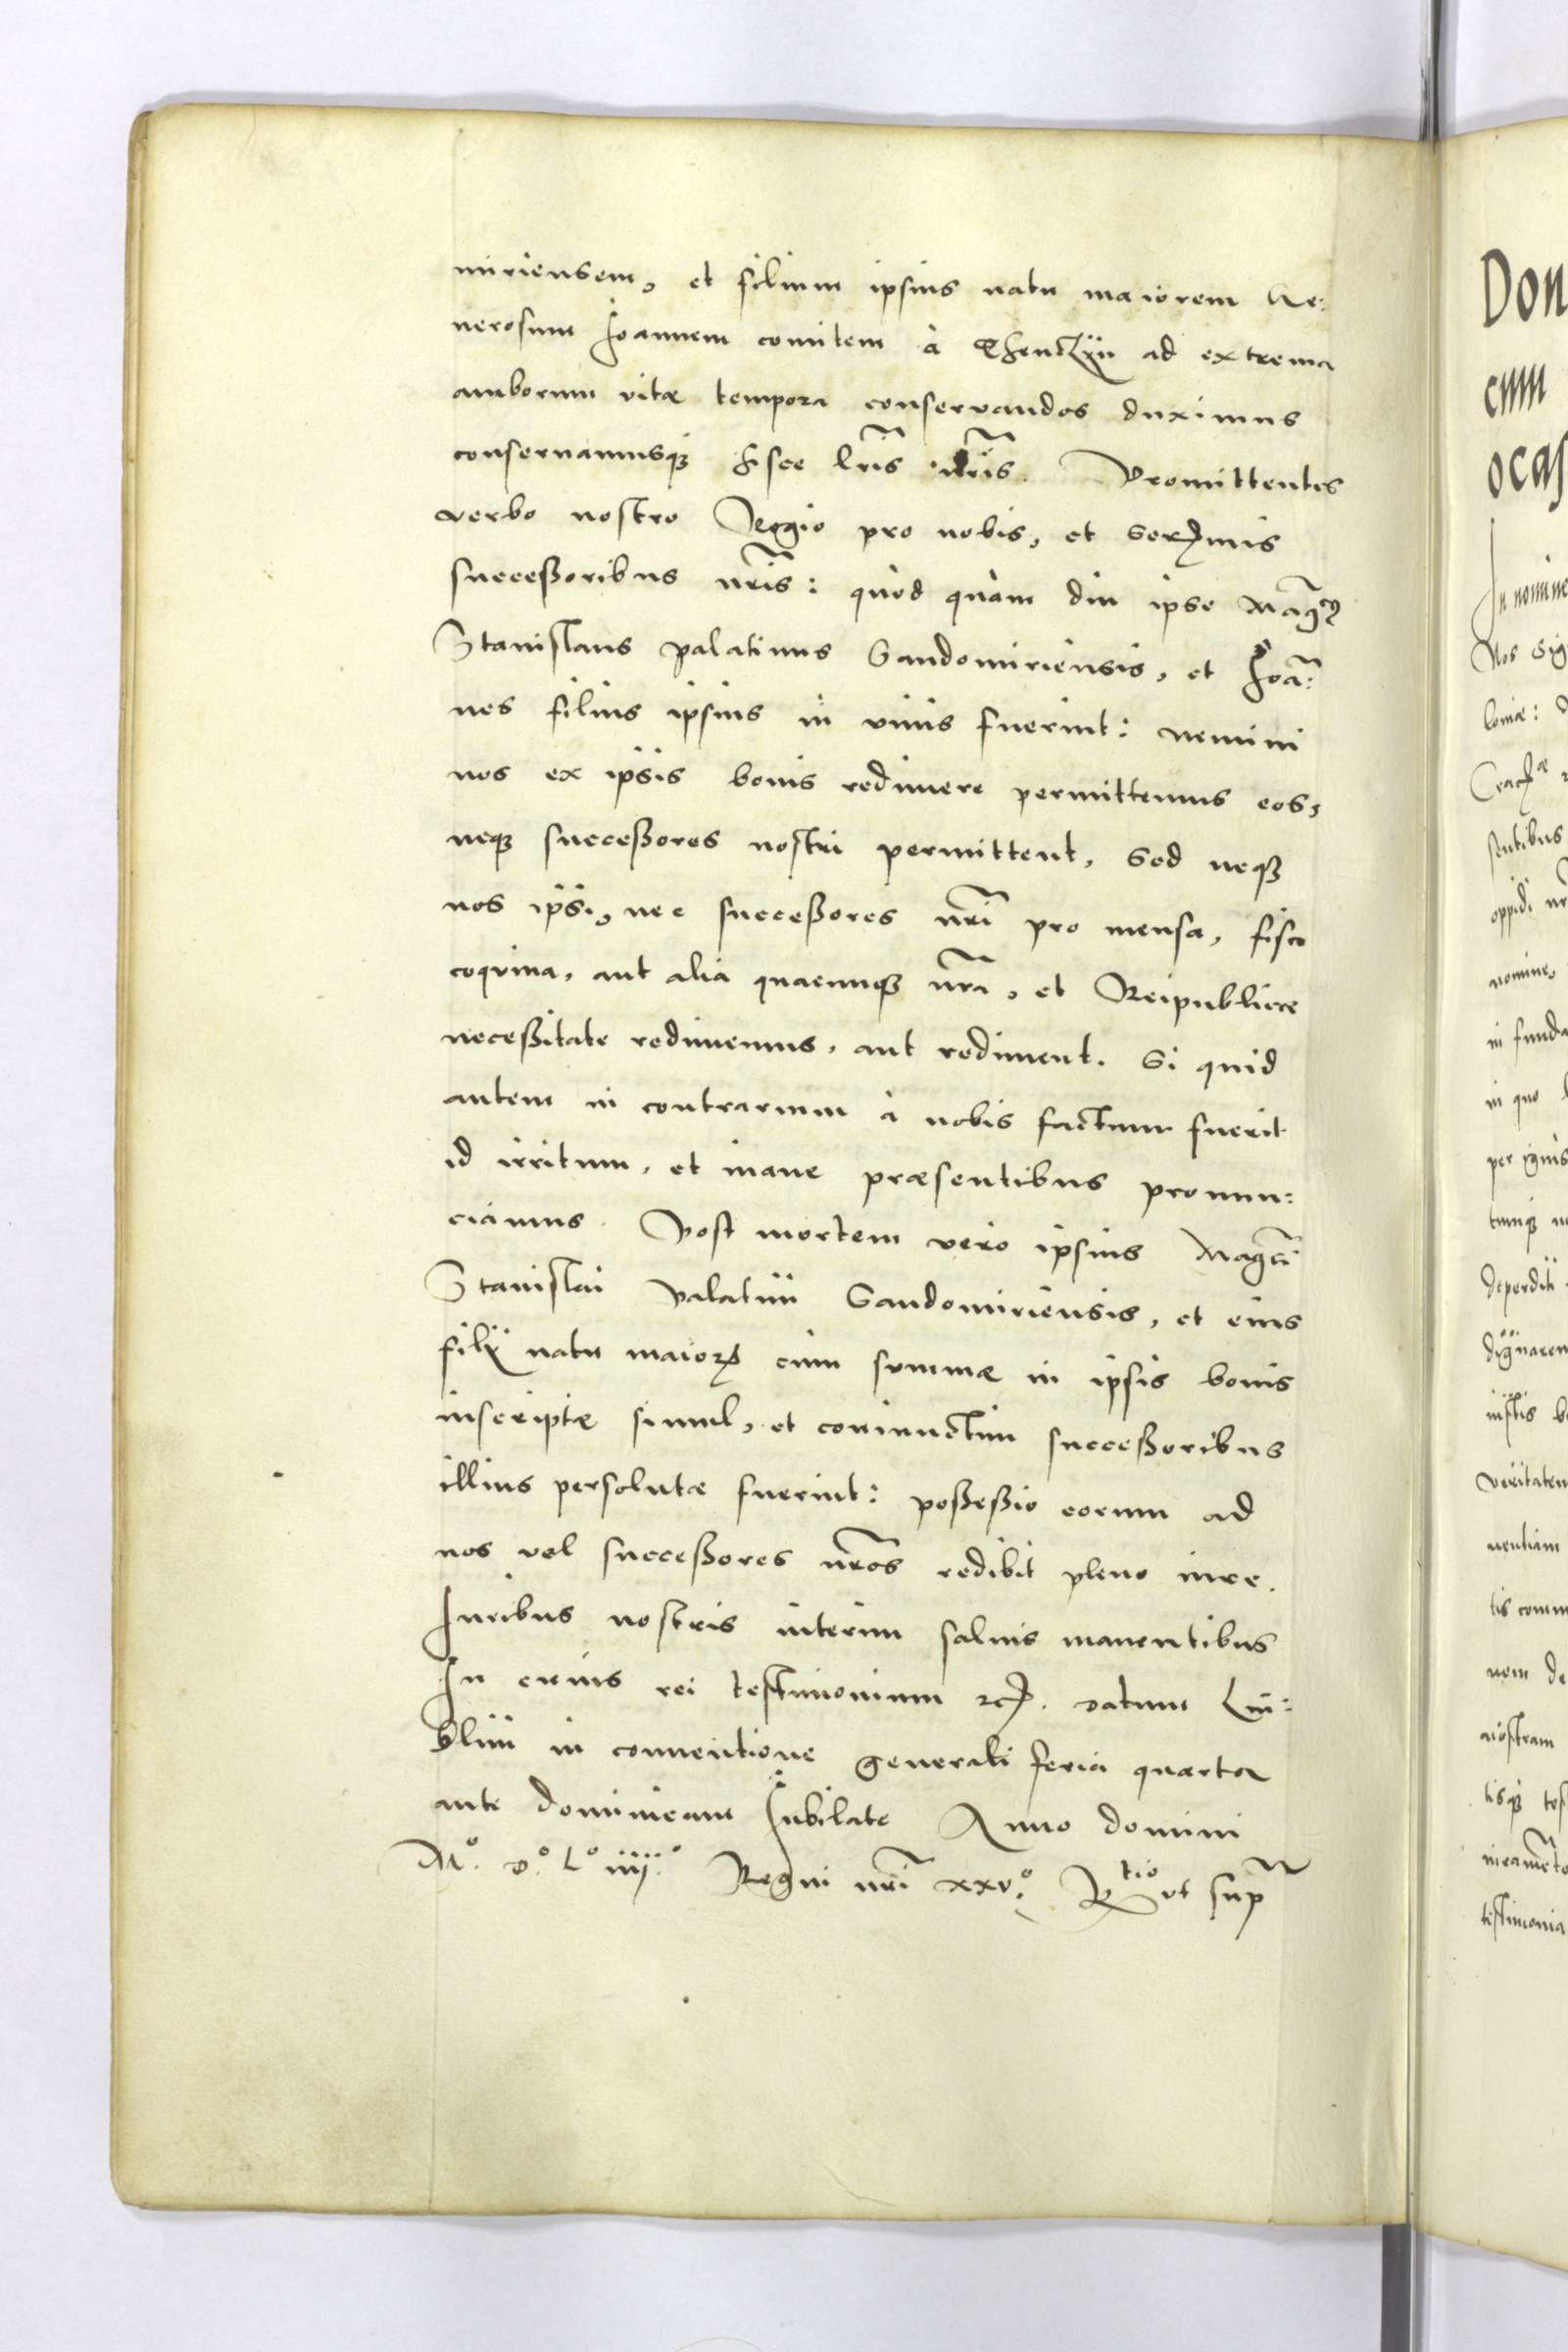 miriensem, et filium ipsius natu maiorem Ge:
nerosum Joannem comitem à Thenczijn ad extrema
amborum vitæ tempora conservandos duximus
conservamusq3 hisce lr̃is nr̃is. Promittentes
verbo nostro Regio pro nobis, et Sermis
successoribus nr̃is: quòd quàm diu ipse Mag̃cus
Stanislaus palatinus Sandomiriensis, et Joã:
nes filius ipsius in vivis fuerint: nemini
nos ex ipsis bonis redimere permittemus eos,
neq3 successores nostri permittent, Sed neq3
nos ipsi, nec successores nr̃i pro mensa, fisco
coquina, aut alia quacunq3 nr̃a, et Reipublicæ
necessitate redimemus, aut rediment. Si quid
autem in contrarium à nobis factum fuerit
id irritum, et inane præsentibus pronun:
ciamus. Post mortem verò ipsius Mag̃ci
Stanislai Palatini Sandomiriensis, et eius
filij natu maioris cùm summæ in ipsis bonis
inscriptæ simul, et coniunctim successoribus
illius persolutæ fuerint: possessio eorum ad
nos vel successores nr̃os redibit pleno iure.
Juribus nostris interim salvis manentibus
In cuius rei testimonium etc. Datum Lu:
blini in conventione generali feria quarta
ante dominicam Jubilate Anno domini
Mº. Dº. Lº iiijº. Regni nr̃i xxvº. Rtio ut sup̃
Don
cum
ocas
In nomine
Nos Sig
loniæ:
sentibus
oppidi
nomine,
in funda
in quo
per ignis
deperditi
veritatem
tis comm
nem de
nostram
testimonia